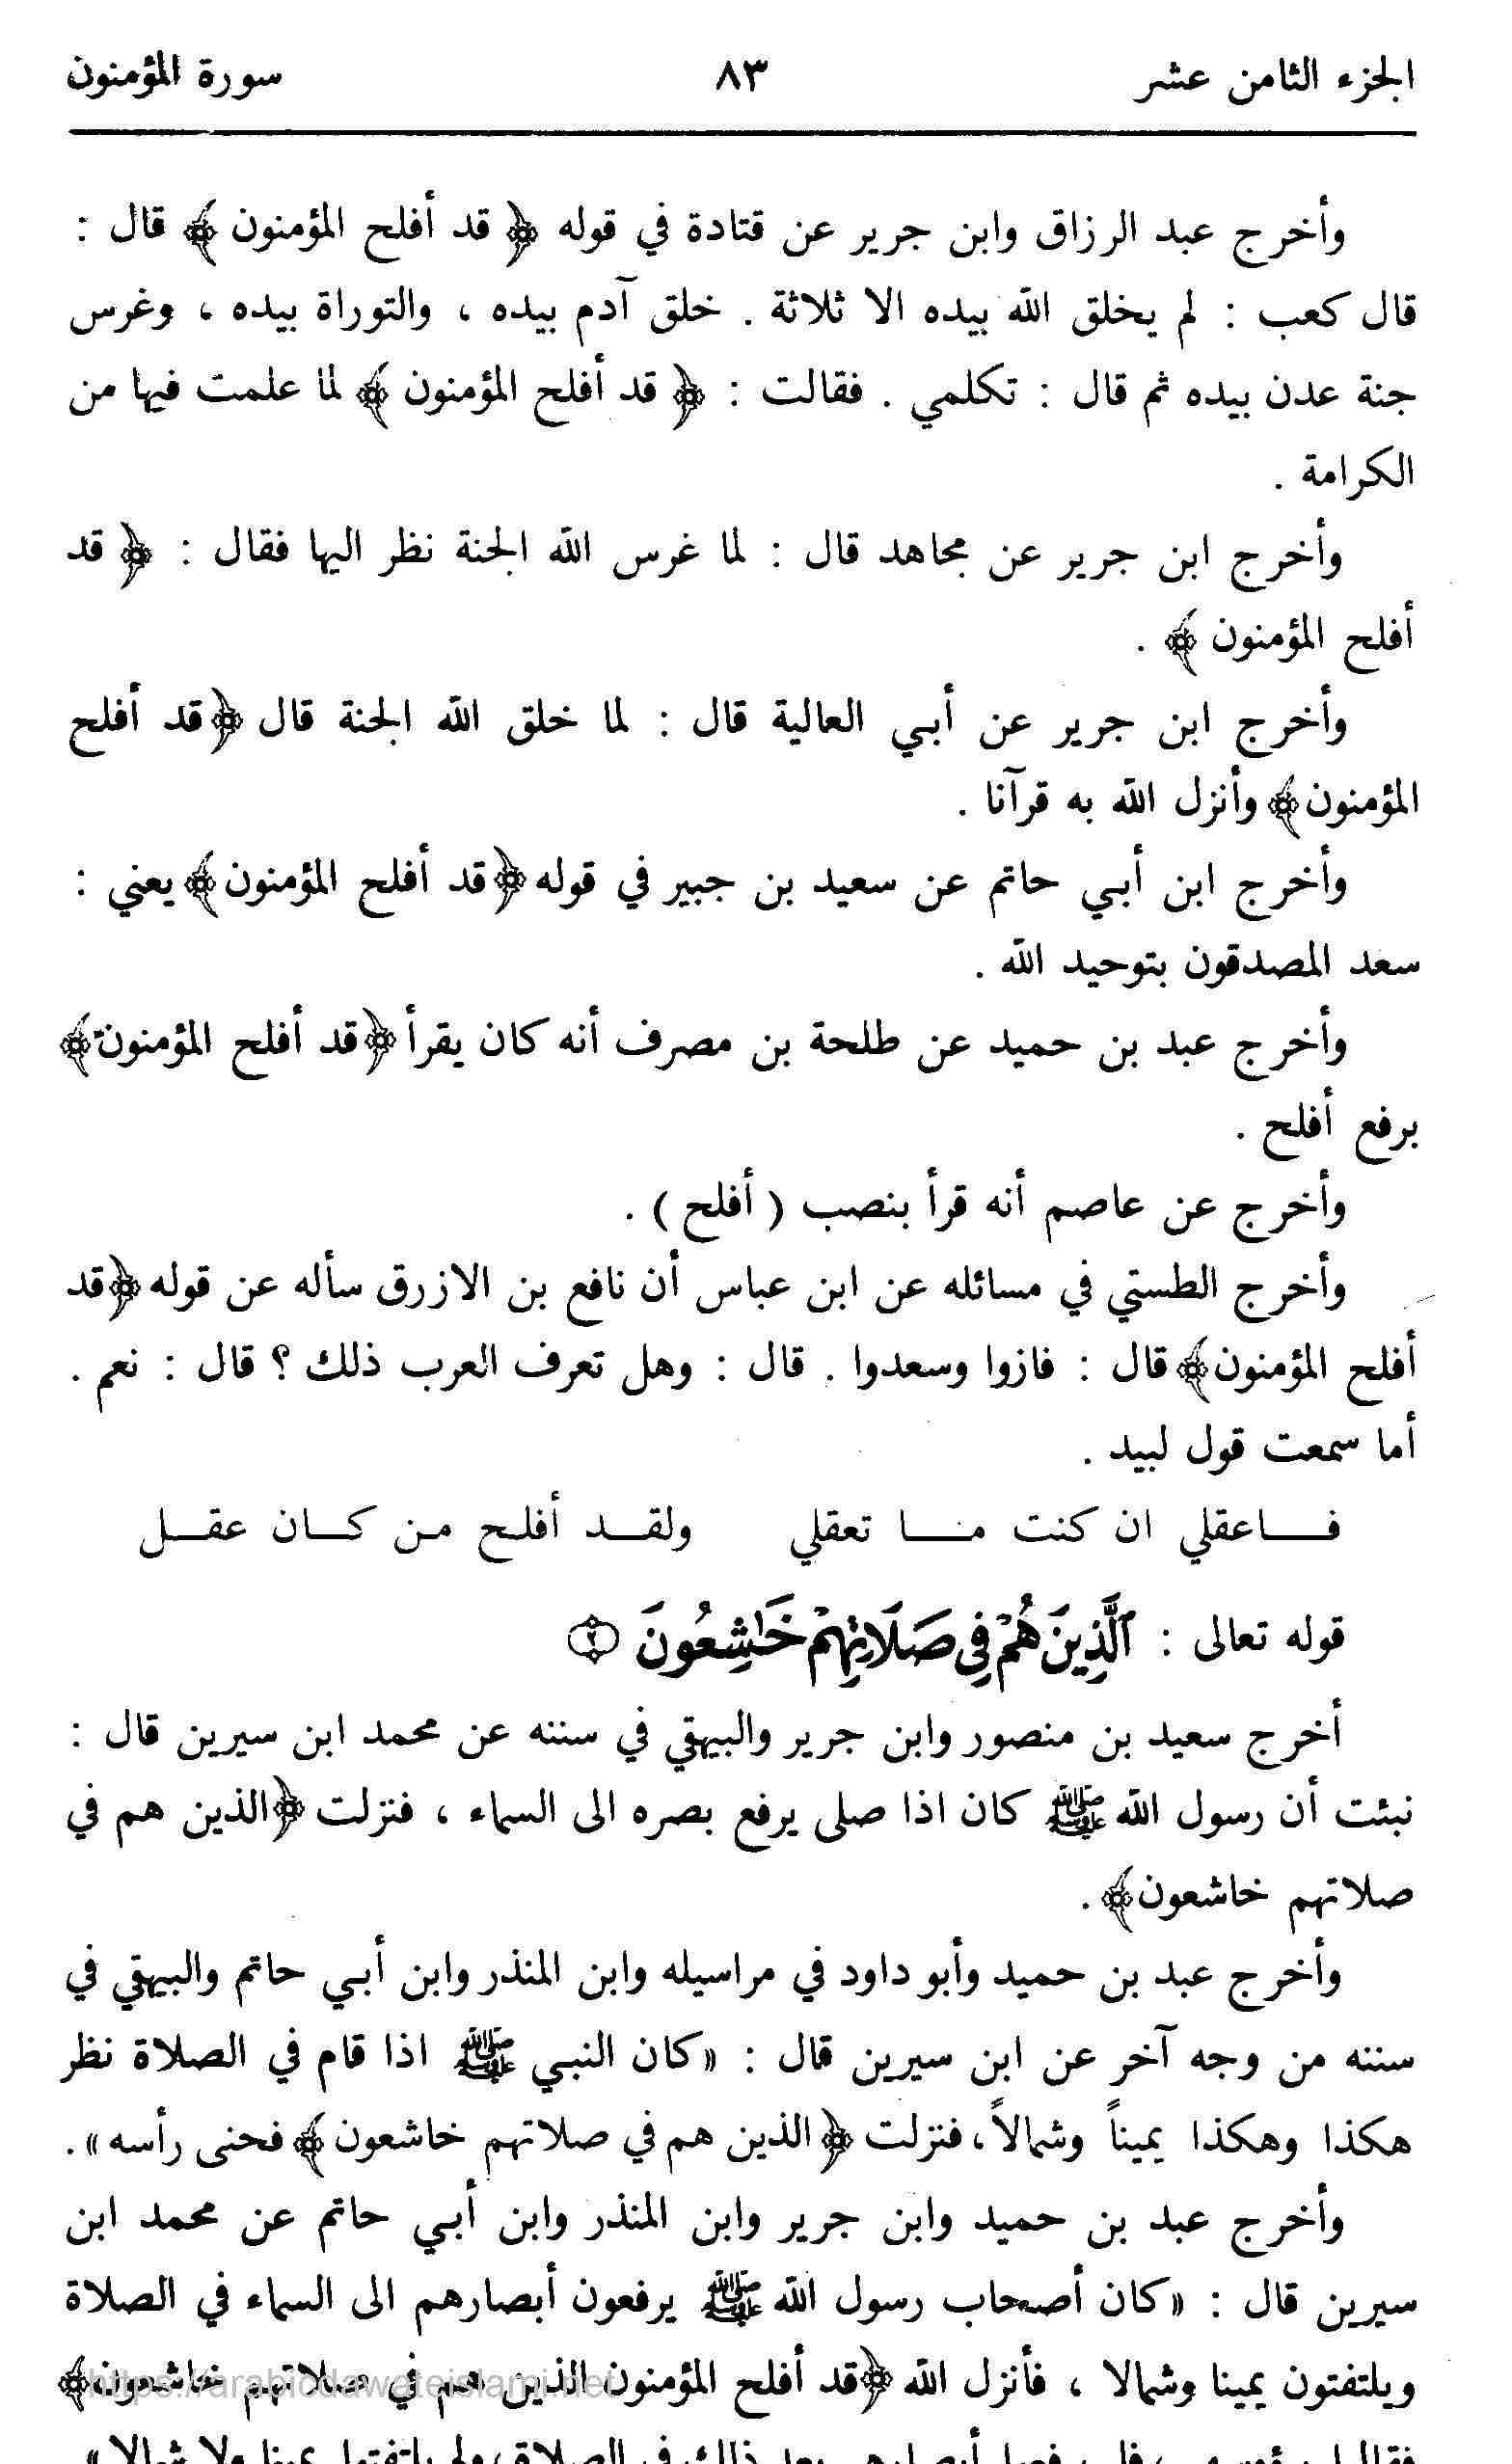 الجزء الثامن عشر ٨٣ سورة المؤمنون
وأخرج عبد الرزاق وابن جرير عن قتادة في قوله ﴿ قد أفلح المؤمنون ﴾ قال :
قال كعب : لم يخلق الله بيده الا ثلاثة . خلق آدم بيده ، والتوراة بيده ، وغرس
جنة عدن بيده ثم قال : تكلمي . فقالت : ﴿ قد أفلح المؤمنون ﴾ لما علمت فيها من
الكرامة .
وأخرج ابن جرير عن مجاهد قال : لما غرس الله الجنة نظر اليها فقال : ﴿ قد
أفلح المؤمنون ﴾ .
وأخرج ابن جرير عن أبي العالية قال : لما خلق الله الجنة قال ﴿قد أفلح
المؤمنون﴾ وأنزل الله به قرآنا .
وأخرج ابن أبي حاتم عن سعيد بن جبير في قوله ﴿قد أفلح المؤمنون﴾ يعني :
سعد المصدقون بتوحيد الله .
وأخرج عبد بن حميد عن طلحة بن مصرف أنه كان يقرأ ﴿قد أفلح المؤمنون﴾
برفع أفلح .
وأخرج عن عاصم أنه قرأ بنصب ( أفلح ) .
وأخرج الطستي في مسائله عن ابن عباس أن نافع بن الازرق سأله عن قوله ﴿قد
أفلح المؤمنون﴾ قال : فازوا وسعدوا . قال : وهل تعرف العرب ذلك ؟ قال : نعم .
أما سمعت قول لبيد .
فـاعقلي ان كنت مـا تعقلي ولقـد أفلـح مـن كـان عقـل
قوله تعالى : ٱلَّذِينَ هُمْ فِى صَلَاتِهِمْ خَٰشِعُونَ ٢
أخرج سعيد بن منصور وابن جرير والبيهقي في سننه عن محمد ابن سيرين قال :
نبئت أن رسول الله ﷺ كان اذا صلى يرفع بصره الى السماء ، فنزلت ﴿الذين هم في
صلاتهم خاشعون﴾ .
وأخرج عبد بن حميد وأبو داود في مراسيله وابن المنذر وابن أبي حاتم والبيهقي في
سننه من وجه آخر عن ابن سيرين قال : «كان النبي ﷺ اذا قام في الصلاة نظر
هكذا وهكذا يميناً وشمالاً، فنزلت ﴿الذين هم في صلاتهم خاشعون﴾ فحنى رأسه» .
وأخرج عبد بن حميد وابن جرير وابن المنذر وابن أبي حاتم عن محمد ابن
سيرين قال : «كان أصحاب رسول الله ﷺ يرفعون أبصارهم الى السماء في الصلاة
ويلتفتون يمينا وشمالا ، فأنزل الله ﴿قد أفلح المؤمنون الذين هم في صلاتهم خاشعون﴾
https://arabicdawateislami.net